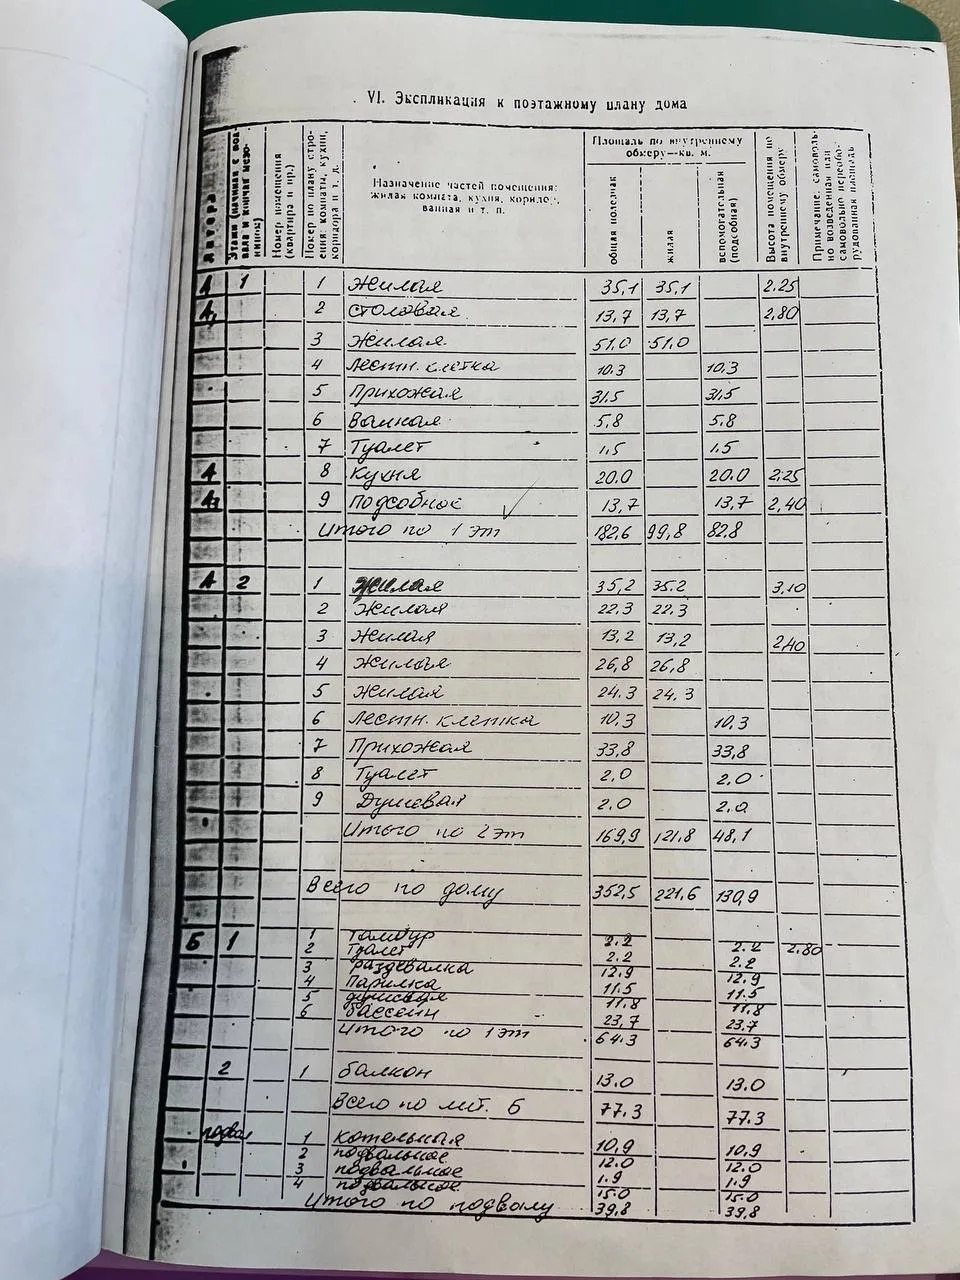 VI. Экспликация к поэтажному плану дома
Литера
Этажи (начиная с подвала и кончая мезонином)
Номер помещения (квартира и пр.)
Номер по плану строения: комнаты, кухни, коридора и т. д.
Назначение частей помещения: жилая комната, кухня, коридор, ванная и т. п.
Площадь по внутреннему обмеру—кв. м.
общая полезная
жилая
вспомогательная (подсобная)
Высота помещения по внутреннему обмеру
Примечание: самовольно возведенная или самовольно переоборудованная площадь
А 1 1 Жилая 35,1 35,1 2.25
А₁ 2 столовая 13,7 13,7 2,80
3 Жилая 51.0 51.0
4 Лестн. клетка 10.3 10.3
5 Прихожая 31,5 31,5
6 Ванная 5,8 5.8
7 Туалет 1,5 1.5
А 8 Кухня 20.0 20.0 2,25
9 Подсобное 13,7 13,7 2,40
Итого по 1 эт 182,6 99,8 82.8
А 2 1 Жилая 35,2 35.2 3,10
2 Жилая 22.3 22.3
3 Жилая 13,2 13,2 2,40
4 Жилая 26,8 26,8
5 Жилая 24.3 24.3
6 Лестн. клетка 10.3 10.3
7 Прихожая 33,8 33,8
8 Туалет 2.0 2.0
9 Душевая 2.0 2.0
Итого по 2 эт 169,9 121.8 48,1
Всего по дому 352,5 221,6 130,9
Б 1 1 Тамбур 2.2 2.2 2,80
2 Туалет 2.2 2.2
3 раздевалка 12,9 12,9
4 Парилка 11.5 11.5
5 душевая 11,8 11,8
6 бассейн 23,7 23.7
Итого по 1 эт 64.3 64.3
2 1 балкон 13.0 13.0
Всего по лит. Б 77.3 77.3
подвал 1 котельная 10,9 10,9
2 подвальное 12.0 12.0
3 подвальное 1.9 1.9
4 подвальное 15.0 15.0
Итого по подвалу 39,8 39,8